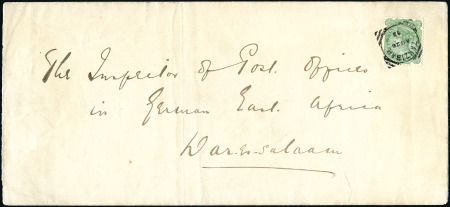 The Inspector of Post Offices
in German East Africa
Dar-es-salaam
ZANZIBAR